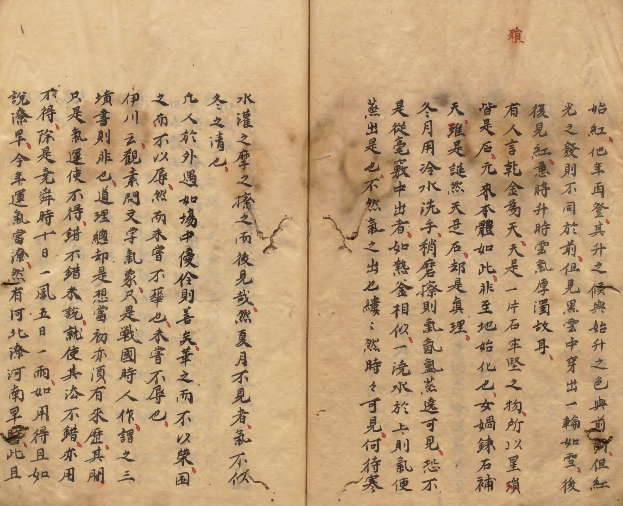 殞
始紅他年再登其升之候與始升之色與前同但紅
光之發則不同於前但見黑雲中穿出一輪如雪後
復見紅意將升時雲氣厚濁故耳
有人言乾金為天天是一片石牢堅之物所以星殞
皆是石元來本體如此非至地始化也女媧鍊石補
天雖是誕然天是石却是真理
冬月用冷水洗手稍磨擦則氣氤氳蒸遶可見恐不
是從毫竅中出者如熱釜相似一澆水於上則氣便
蒸出是也不然氣之出也縷〻然時〻可見何待寒
水灌之摩之擦之而後見哉然夏月不見者氣不似
冬之清也
凡人於外遇如場中優伶則善矣華之而不以榮困
之而不以辱然而未嘗不華也未嘗不辱也
伊川云觀素問文字氣象只是戰國時人作謂之三
墳書則非也道理總却是想當初亦須有來歷其間
只是氣運使不得錯不錯未說就使其法不錯亦用
不得除是堯舜時十日一風五日一雨如用得且如
說潦旱今年運氣當潦然有河北潦河南旱此且